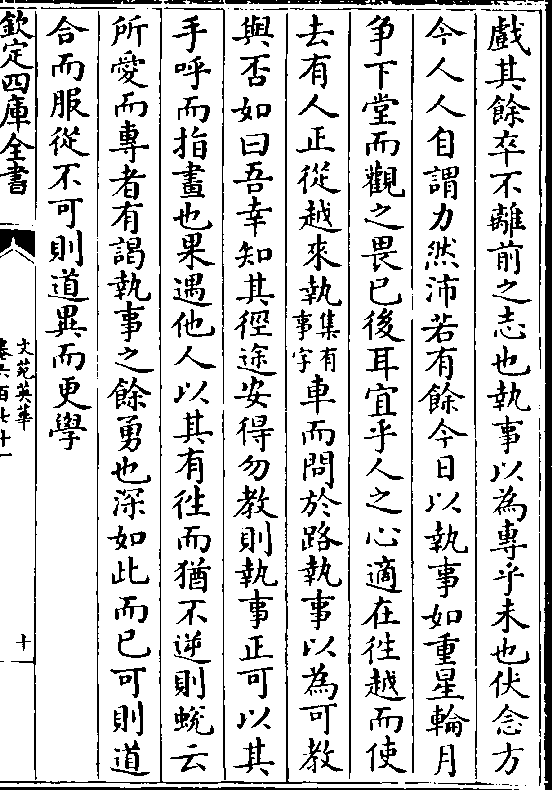 戲其餘卒不離前之志也執事以為專乎未也伏念方
今人人自謂力然沛若有餘今日以執事如重星輪月
争下堂而觀之畏已後耳宜乎人之心適在徃越而使
去有人正從越來執集有事字車而問於路執事以為可教
與否如曰吾幸知其徑途安得勿教則執事正可以其
手呼而指畫也果遇他人以其有徃而猶不逆則蜺云
所愛而專者有謁執事之餘勇也深如此而已可則道
合而服從不可則道異而更學
欽定四庫全書
文苑英華
卷六百七十一
十